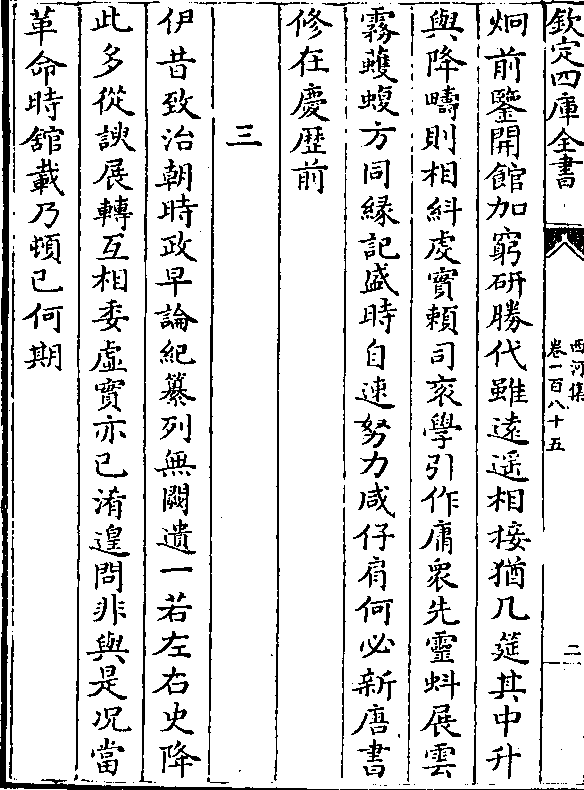 欽定四庫全書
西河集
卷一百八十五
二
炯前鑒開館加窮研勝代雖遠遥相接猶几筵其中升
與降疇則相糾䖍實頼司衮學引作庸衆先靈蚪展雲
霧蠖蝮方同縁記盛時自速努力咸仔肩何必新唐書
修在慶歴前
三
伊昔致治朝時政早論紀纂列無闕遺一若左右史降
此多從諛展轉互相委虚實亦已淆遑問非與是况當
革命時舘載乃頓已何期